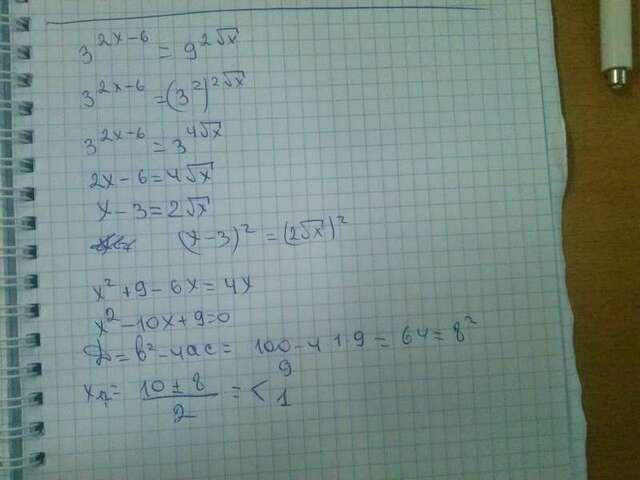 3^{2x-6} = 9^{2√x}
3^{2x-6} = (3^2)^{2√x}
3^{2x-6} = 3^{4√x}
2x-6=4√x
x-3=2√x
(x-3)^2 = (2√x)^2
x^2+9-6x=4x
x^2-10x+9=0
D=b^2-4ac= 100-4·1·9=64=8^2
x = (10±8)/2 = < 9
1